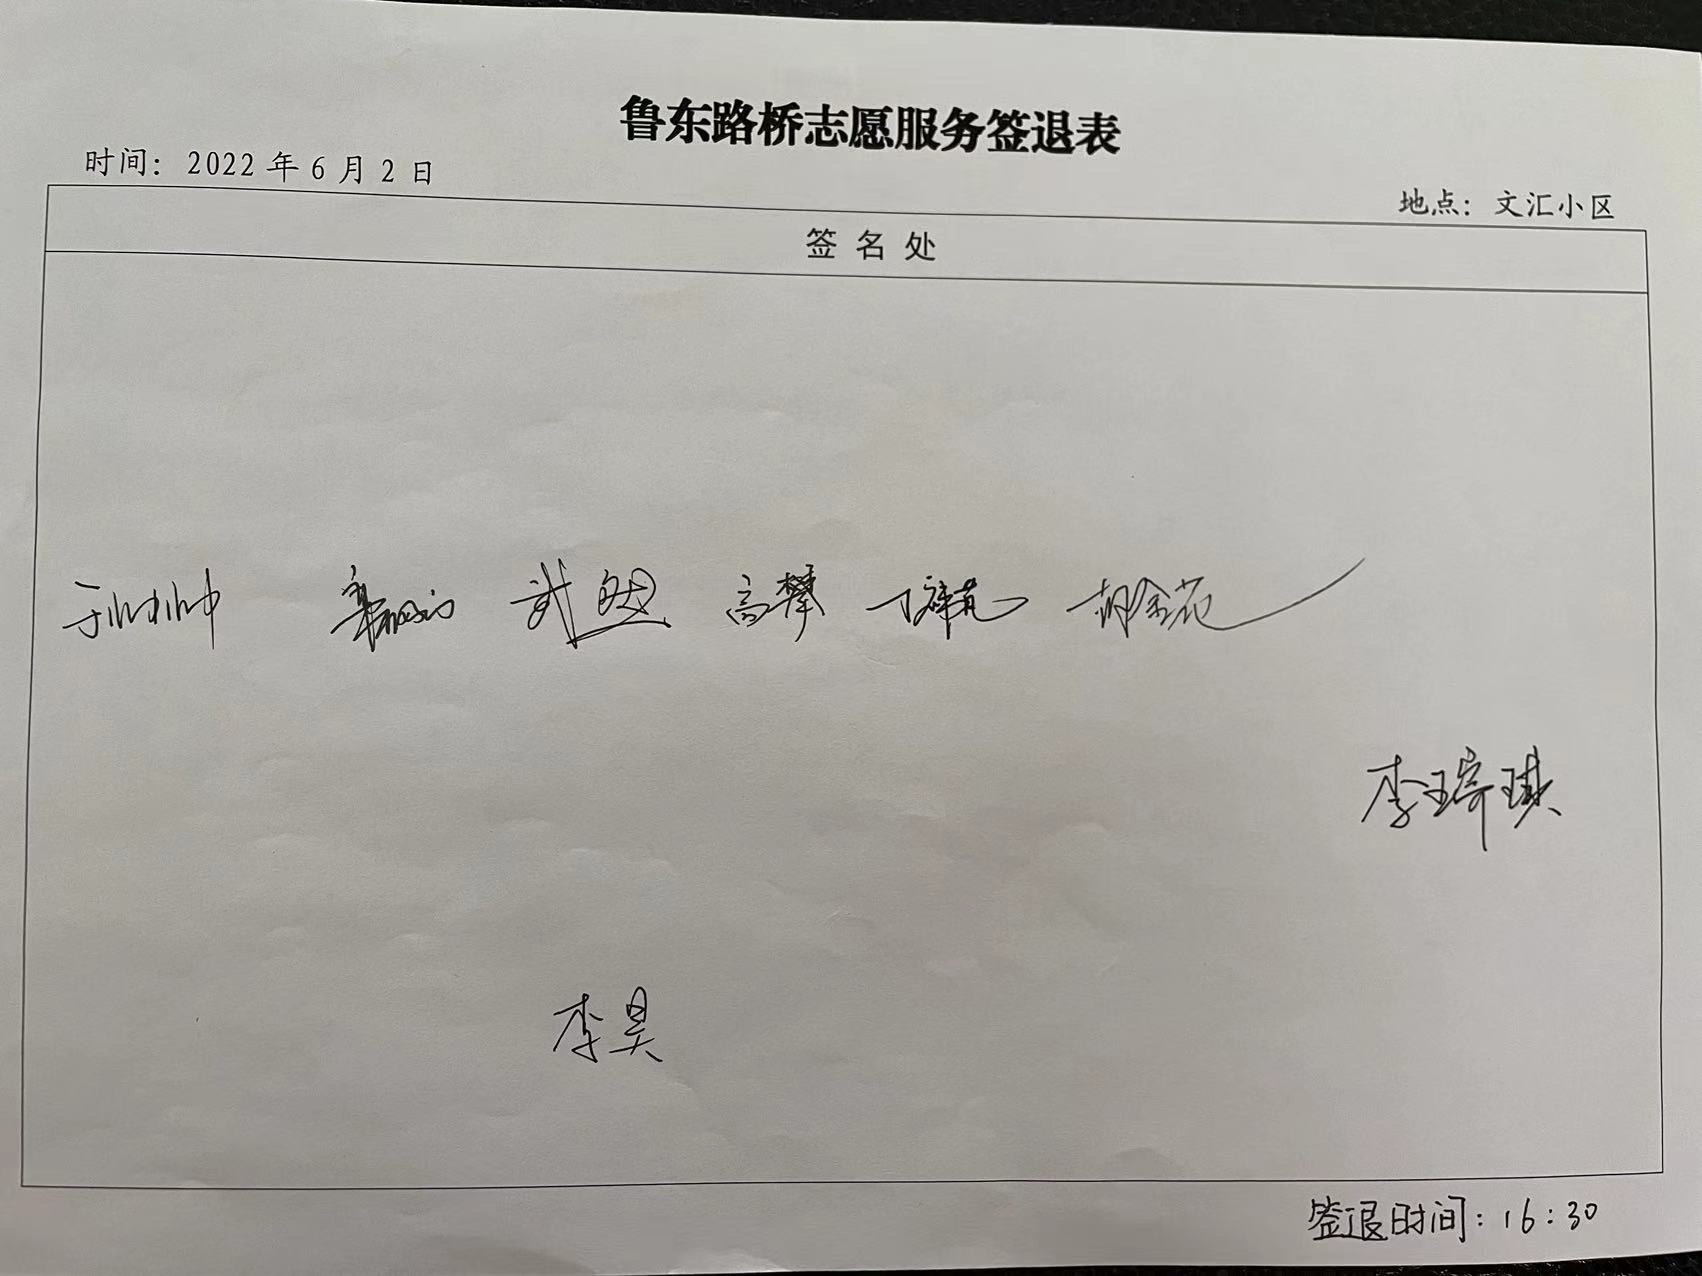 鲁东路桥志愿服务签退表
时间：2022年6月2日
地点：文汇小区
签名处
高攀 胡金花
李琦琪
李昊
签退时间：16:30